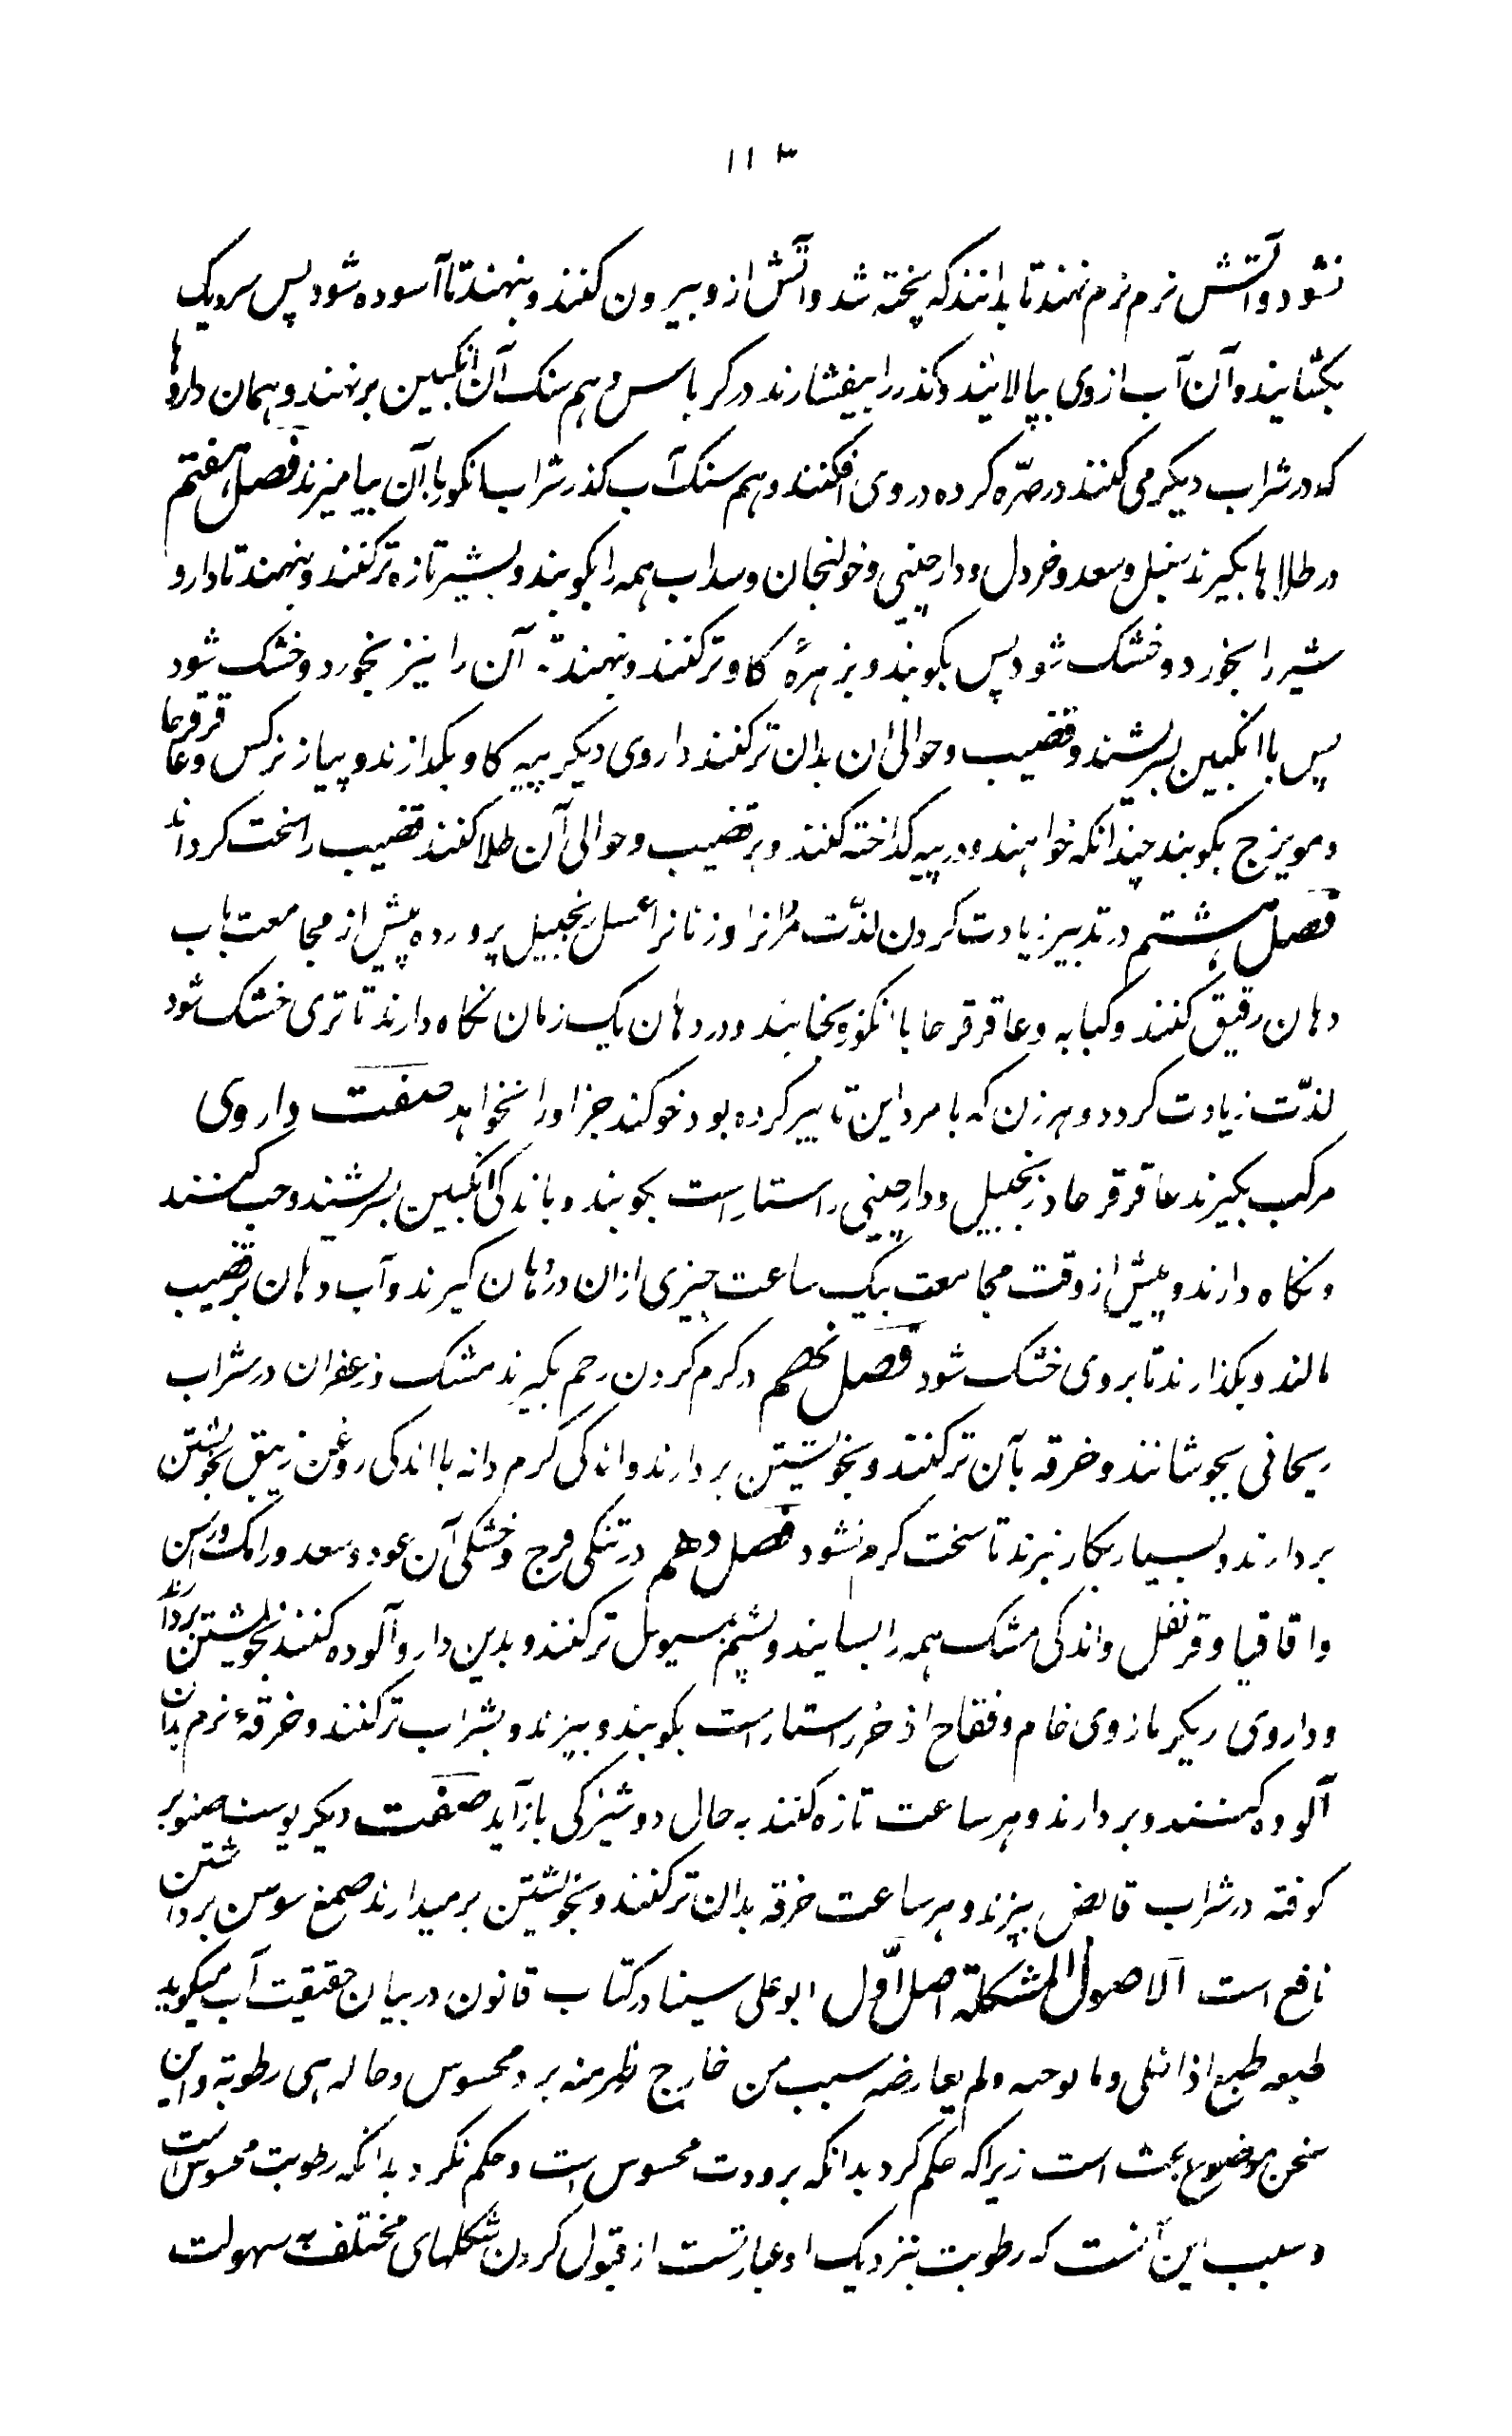 ۱۱۳
نشود و آتش نرم نرم نهند تا بدانند که پخته شد و آتش از و بیرون کنند و بنهند تا آسوده شود پس سر دیک
بکشایند و آن آب از وی بپالایند و کذر را بیفشارند در کرباس و هم سنک آن انکبین برنهند و همان داروها
که در شراب دیکر می کنند در صرّه کرده در وی افکنند و هم سنک آب کذر شراب انکوری با آن بیامیزند فصل هفتم
در طلاها بکیرند سنبل و سعد و خردل و دارچینی و خولنجان و سداب همه را بکوبند و بشیر تازه تر کنند و بنهند تا دارو
شیر را بخورد و خشک شود پس بکوبند و بزهرهٔ کاو تر کنند و بنهند تا آن را نیز بخورد و خشک شود
پس با انکبین بسرشند و قضیب و حوالی ان بدان تر کنند داروی دیکر پیه کاو بکدازند و پیاز نرکس و عاقرقرحا
و مویزج بکوبند چندانکه خواهند و در پیه کداخته کنند و بر قضیب و حوالی آن طلا کنند قضیب را سخت کرداند
فصل هشتم در تدبیر زیادت کردن لذّت مردانرا و زنانرا عسل زنجبیل پرورده پیش از مجامعت باب
دهان رقیق کنند و کبابه و عاقرقرحا با انکوزه بخایند و در دهان یک زمان نکاه دارند تا تری خشک شود
لذّت زیادت کردد و هر زن که با مرد این تدبیر کرده بود خو کند جز او را نخواهد صفت داروی
مرکب بکیرند عاقرقرحا و زنجبیل و دارچینی راستاراست بکوبند و باندکی انکبین بسرشند و حب کنند
و نکاه دارند و پیش از وقت مجامعت بیک ساعت چیزی ازان در دهان کیرند و آب دهان بر قضیب
مالند و بکذارند تا بروی خشک شود فصل نهم در کرم کردن رحم بکیرند مشک و زعفران در شراب
ریحانی بجوشانند و خرقه بآن تر کنند و بخویشتن بردارند و اندکی کرم دانه با اندکی روغن زیبق بخویشتن
بردارند و بسیار بکار نبرند تا سخت کرم نشود فصل دهم در تنکی فرج و خشکی آن عود و سعد و رامک و راسن
و اقاقیا و قرنفل و اندکی مشک همه را بسایند و پشم بمیسوس تر کنند و بدین دارو آلوده کنند بخویشتن بردارند
و داروی دیکر مازوی خام و فقاح اذخر راستاراست بکوبند و ببیزند و بشراب تر کنند و خرقهٔ نرم بدان
آلوده کنند و بردارند و هر ساعت تازه کنند به حال دوشیزکی بازآید صفت دیکر پوست صنوبر
کوفته در شراب قابض بپزند و هر ساعت خرقه بدان تر کنند و بخویشتن برمیدارند صمغ سوس برداشتن
نافع است الاصول المشکلة اصل اوّل ابوعلی سینا در کتاب قانون در بیان حقیقت آب میکوید
طبعه طبع اذا خلی و ما یوجبه و لم یعارضه سبب من خارج ظهر منه برد محسوس و حاله هی رطوبة و این
سخن موضوع بحث است زیراکه حکم کرد بدانکه برودت محسوس است و حکم نکرد بدانکه رطوبت محسوس است
و سبب این آنست که رطوبت بنزدیک او عبارتست از قبول کردن شکلهای مختلف به سهولت